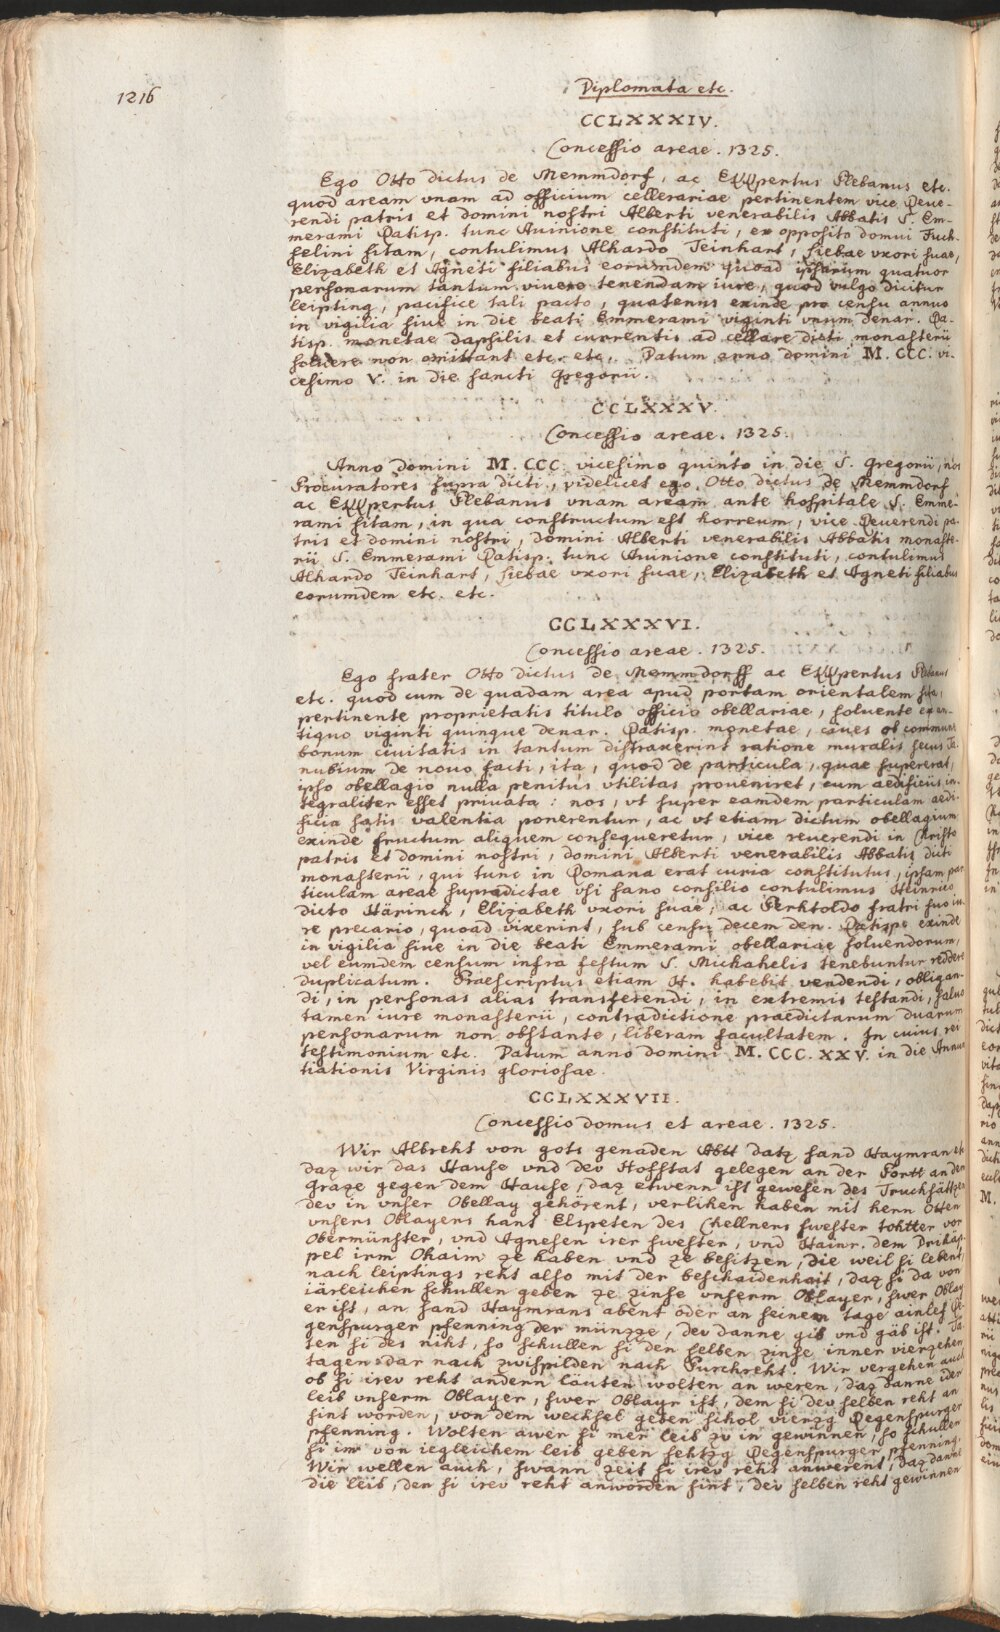 1216
Diplomata etc.
CCLXXXIV.
Concessio areae. 1325.
Ego Otto dictus de Memmdorf, ac Ekkpertus Plebanus etc.
quod aream vnam ad officium cellerariae pertinentem vice Reue-
rendi patris et domini nostri Alberti venerabilis Abbatis S. Em-
merami Ratisp. tunc Auinione constituti, ex opposito domui Fuch-
selini sitam, contulimus Alhardo Teinhart, Liebae vxori suae,
Elizabeth et Agneti filiabus eorumdem quoad ipsarum quatuor
personarum tantum viuere tenendam iure, quod vulgo dicitur
leipting, pacifice tali pacto, quatenus exinde pro censu annuo
in vigilia siue in die beati Emmerami viginti vnum denar. Ra-
tisp. monetae dapsilis et currentis ad cellare dicti monasterii
soluere non omittant etc. etc. Datum anno domini M. CCC. vi-
cesimo V. in die sancti Gregorii.
CCLXXXV.
Concessio areae. 1325.
Anno domini M. CCC. vicesimo quinto in die S. Gregorii, nos
Procuratores supra dicti, videlicet ego Otto dictus de Memmdorf
ac Ekkpertus Plebanus vnam aream ante hospitale S. Emme-
rami sitam, in qua constructum est horreum, vice Reuerendi pa-
tris et domini nostri, Domini Alberti venerabilis Abbatis monaste-
rii S. Emmerami Ratisp. tunc Auinione constituti, contulimus
Alhardo Teinhart, Liebae vxori suae, Elizabeth et Agneti filiabus
eorumdem etc. etc.
CCLXXXVI.
Concessio areae. 1325.
Ego frater Otto dictus de Memmdorff ac Ekkpertus Plebanus
etc. quod cum de quadam area apud portam orientalem sita,
pertinente proprietatis titulo officio obellariae, soluente ex an-
tiquo viginti quinque denar. Ratisp. monetae, ciues ob commune
bonum ciuitatis in tantum distraxerint ratione muralis secus Da-
nubium de nouo facti, ita, quod de particula, quae supererat,
ipso obellagio nulla penitus vtilitas proueniret, cum aedificiis in-
tegraliter esset priuata: nos, vt super eamdem particulam aedi-
ficia satis valentia ponerentur, ac vt etiam dictum obellagium
exinde fructum aliquem consequeretur, vice reuerendi in Christo
patris et domini nostri, domini Alberti venerabilis Abbatis dicti
monasterii, qui tunc in Romana erat curia constitutus, ipsam par-
ticulam areae supradictae vsi sano consilio contulimus Heinrico
dicto Härinch, Elizabeth vxori suae, ac Perhtoldo fratri suo iu-
re precario, quoad vixerint, sub censu decem den. Ratisp. exinde
in vigilia siue in die beati Emmerami obellariae soluendorum,
vel eumdem censum infra festum S. Michahelis tenebuntur reddere
duplicatum. Praescriptus etiam H. habebit vendendi, obligan-
di, in personas alias transferendi, in extremis testandi, saluo
tamen iure monasterii, contradictione praedictarum duarum
personarum non obstante, liberam facultatem. In cuius rei
testimonium etc. Datum anno domini M. CCC. XXV. in die Annun-
tiationis Virginis gloriosae.
CCLXXXVII.
Concessio domus et areae. 1325.
Wir Albreht von gots genaden Abtt datz sand Haymran etc
daz wir das Hause vnd dev Hofstat gelegen an der Portt an der
Graze gegen dem Hause, daz etwenn ist gewesen des Truchsätzen
dev in vnser Obellay gehörent, verlihen haben mit hern Otten
vnsers Oblayers hant Elspeten des Chellners swester tohtter vor
Obermünster, vnd Agnesen irer swester, vnd Hainr. dem Drihäp-
pel irm Ohaim ze haben vnd ze besitzen, die weil si lebent,
nach leiptings reht also mit der beschaidenhait, daz si da von
iärleichen schullen geben ze zinse vnserm Oblayer, swer Oblay
er ist, an sand Haymrans abent oder an seinem tage ainlef Re-
genspurger pfenning der münzze, dev danne gib vnd gäb ist. Tä-
ten si des niht, so schullen si den selben zinse innen vierzehen
tagen dar nach zwispilden nach Purchreht. Wir vergehen auch
ob si irev reht andern läuten wolten an weren, daz danne ider
leib vnserm Oblayer, swer Oblayr ist, dem si dev selben reht an
sint worden, von dem wechsel geben schol vierzg Regenspurger
pfenning. Wolten awer si mer leib zv in gewinnen, so schullen
si im von iegleichem leib geben sehtzg Regenspurger pfenning.
Wir wellen auch, swann zeit si irev reht anwerent, daz danne
die leib, den si irev reht anworden sint, dev selben reht gewinnen